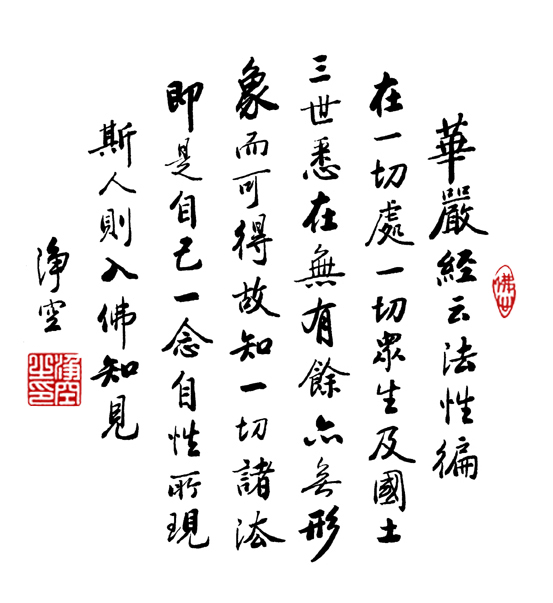 華嚴經云法性徧
在一切處一切眾生及國土
三世悉在無有餘亦无形
象而可得故知一切諸法
即是自己一念自性所現
斯人則入佛知見
淨空